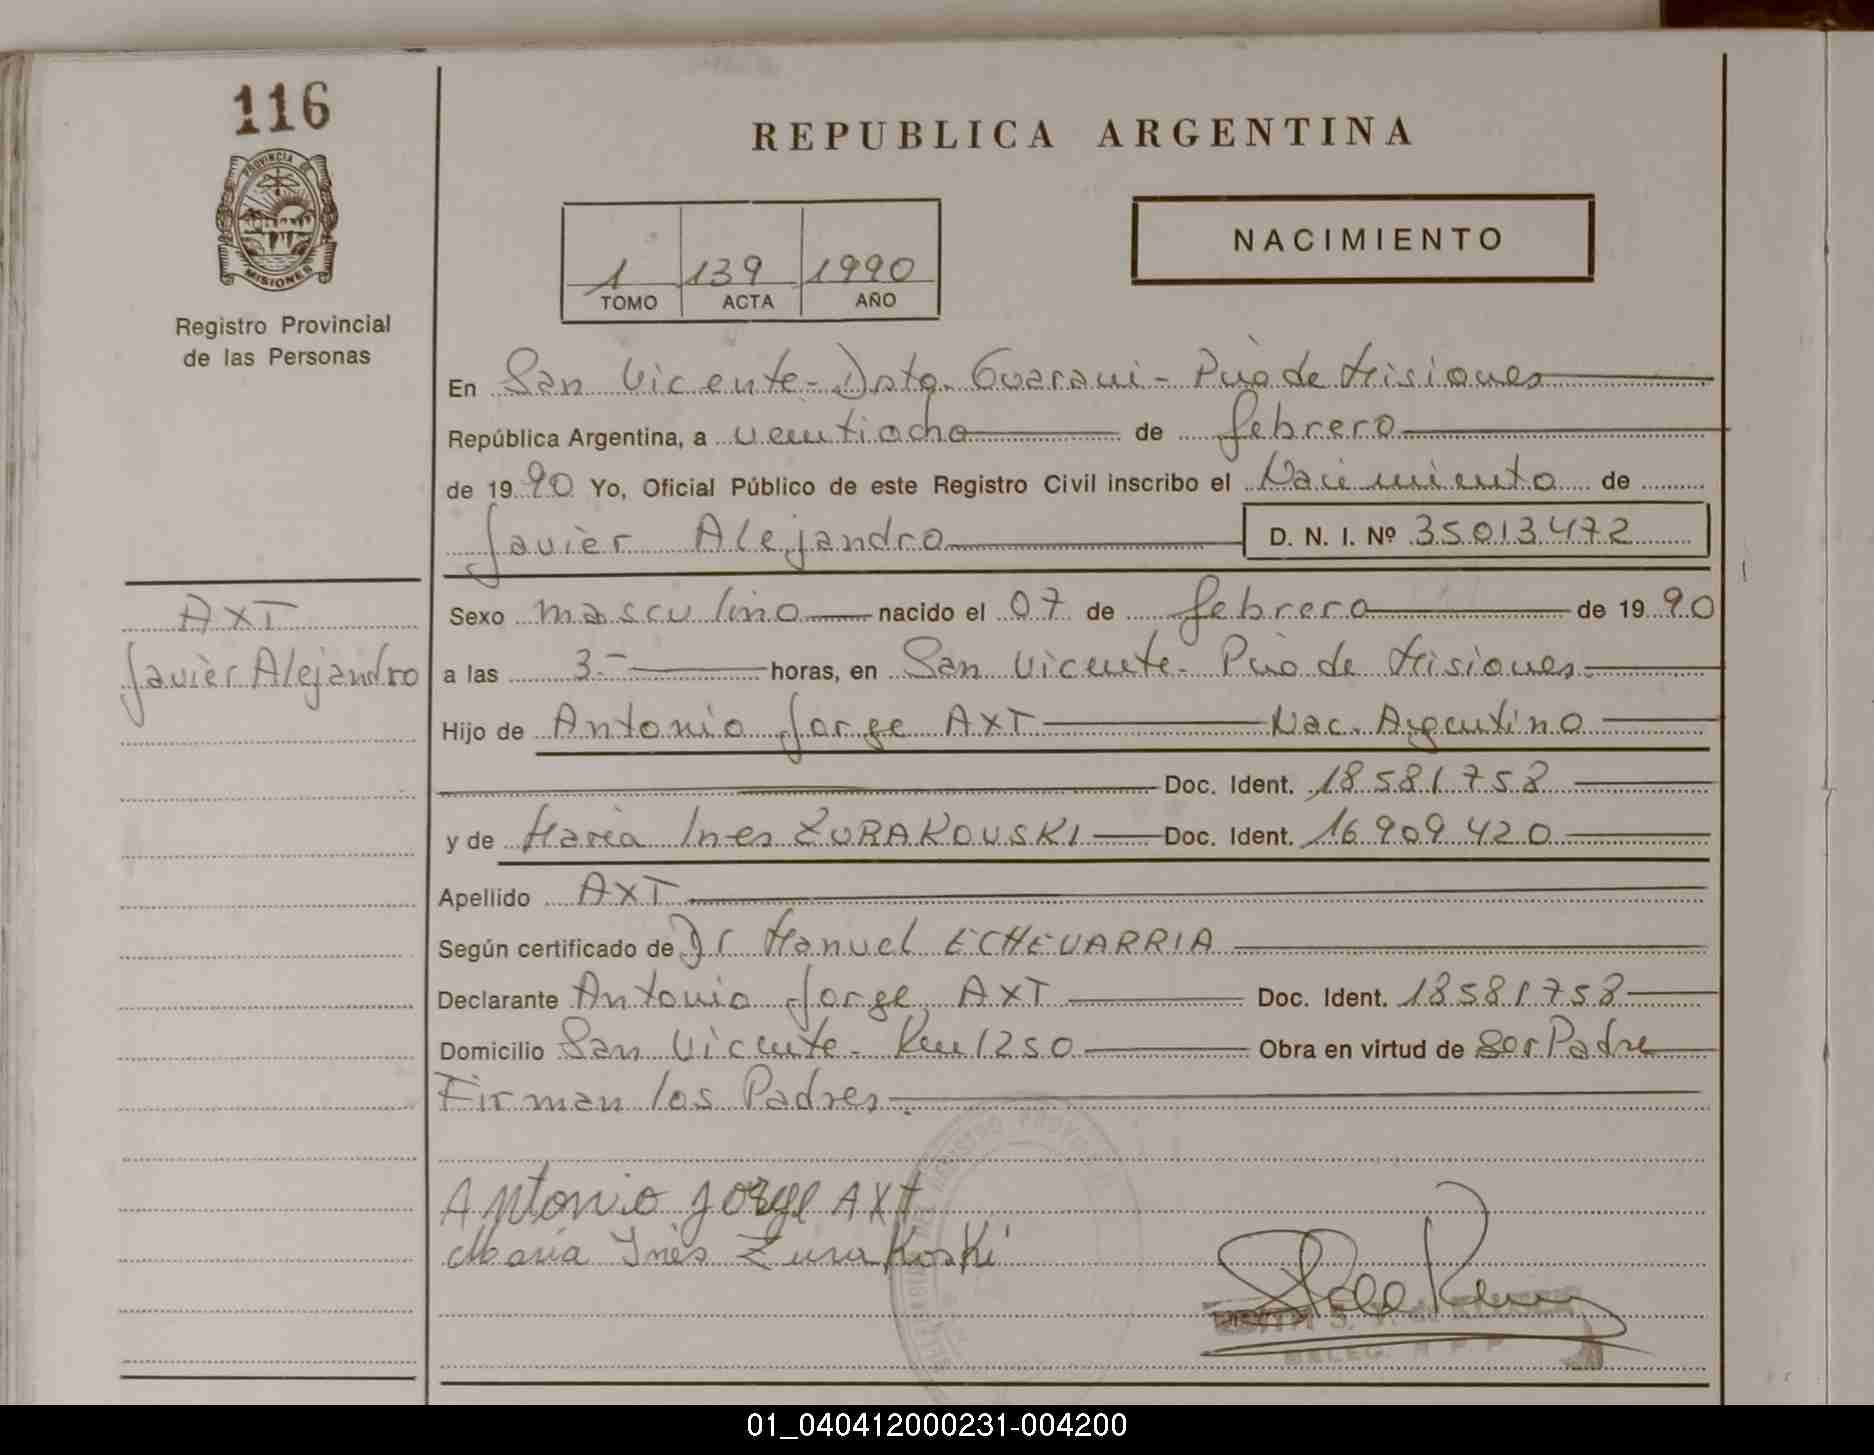 116
PROVINCIA DE
MISIONES
Registro Provincial
de las Personas
REPUBLICA ARGENTINA
1 139 1990
TOMO ACTA AÑO
NACIMIENTO
En San Vicente - Dpto. Guarani - Pcia de Misiones
República Argentina, a veintiocho de febrero
de 1990 Yo, Oficial Público de este Registro Civil inscribo el Nacimiento de
Javier Alejandro D. N. I. Nº 35013472
AXT
Javier Alejandro
Sexo masculino nacido el 07 de febrero de 1990
a las 3.- horas, en San Vicente - Pcia de Misiones.
Hijo de Antonio Jorge AXT Nac. Argentino
Doc. Ident. 18 581 758
y de Maria Ines ZURAKOVSKI Doc. Ident. 16 909 420
Apellido AXT
Según certificado de Dr Manuel ECHEVARRIA
Declarante Antonio Jorge AXT Doc. Ident. 18581758
Domicilio San Vicente - Km 1250 Obra en virtud de ser Padre
Firman los Padres.
Antonio Jorge AXt
Maria Inés Zurakoski
01_040412000231-004200